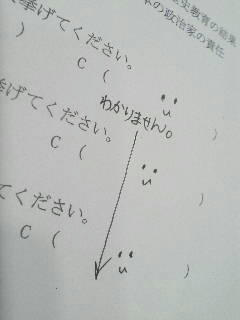 史教育の結果
の政治家の責任
挙げてください。
) C ( )
わかりません。
挙げてください。
C ( )
てください。
C ( )